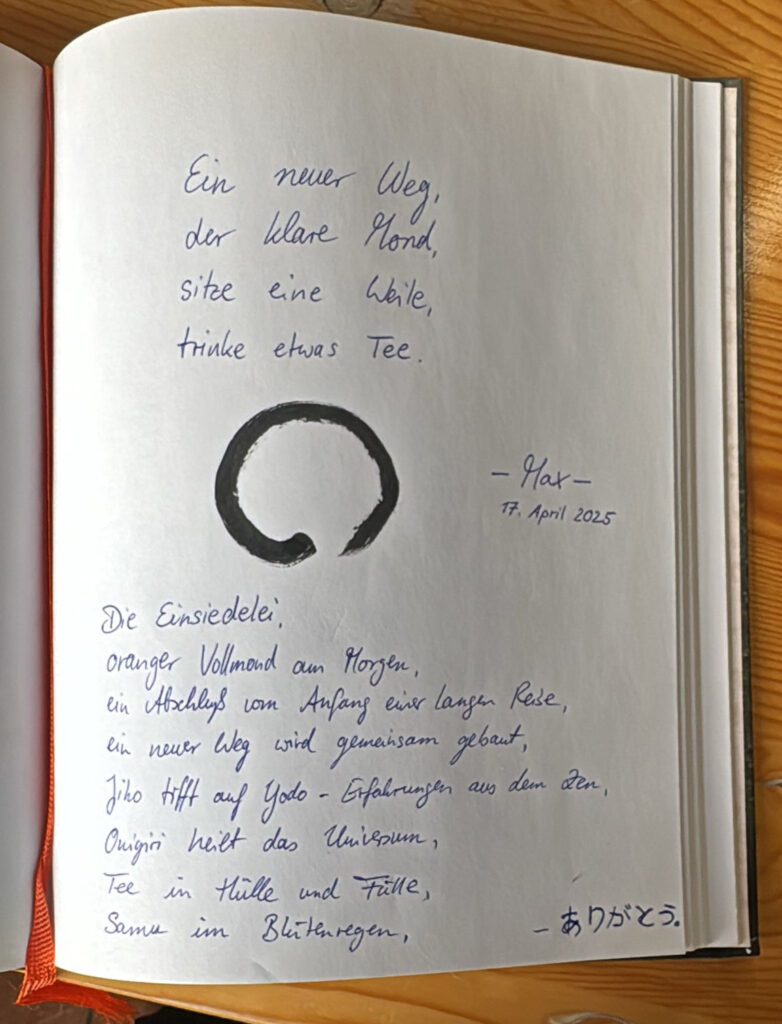 Ein neuer Weg,
der klare Mond,
sitze eine Weile,
trinke etwas Tee.
– Max –
17. April 2025
Die Einsiedelei,
oranger Vollmond am Morgen,
ein Abschluß vom Anfang einer langen Reise,
ein neuer Weg wird gemeinsam gebaut,
Jiho trifft auf Yodo – Erfahrungen aus dem Zen,
Onigiri heilt das Universum,
Tee in Hülle und Fülle,
Samu im Blütenregen,
– ありがとう。